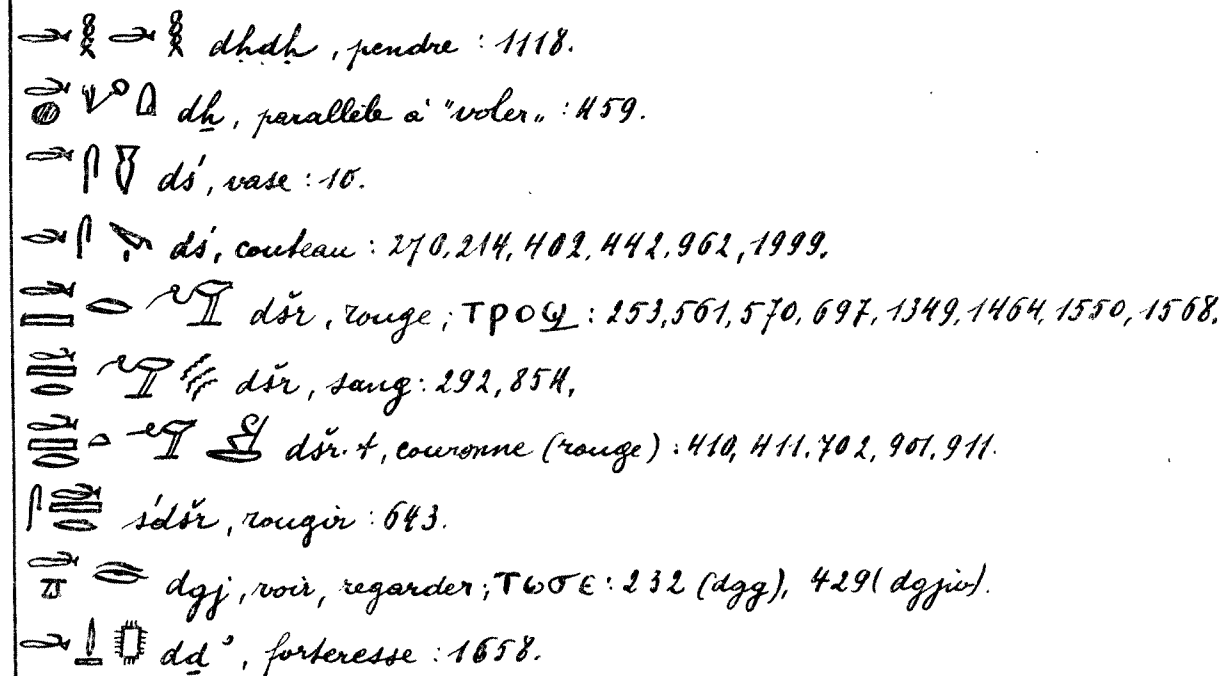 𓂧𓎛𓂧𓎛 dḥdḥ, pendre : 1118.
𓂧𓐍 dẖ, parallèle à "voler„ : 459.
𓂧𓋴𓏊 dś, vase : 10.
𓂧𓋴𓌪 dś, couteau : 270, 214, 402, 442, 962, 1999.
𓂧𓈙𓂋 dšr, rouge ; ⲧⲣⲟϣ : 253, 561, 570, 697, 1349, 1464, 1550, 1568.
𓂧𓈙𓂋 dšr, sang : 292, 854,
𓂧𓈙𓂋𓏏 𓋔 dšr.t, couronne (rouge) : 410, 411, 702, 901, 911.
𓋴𓂧𓈙𓂋 śdšr, rougir : 643.
𓂧𓎼𓁹 dgj, voir, regarder ; ⲧⲱϭⲉ : 232 (dgg), 429 (dgjw).
𓂧𓍑 dḏꜣ, forteresse : 1658.